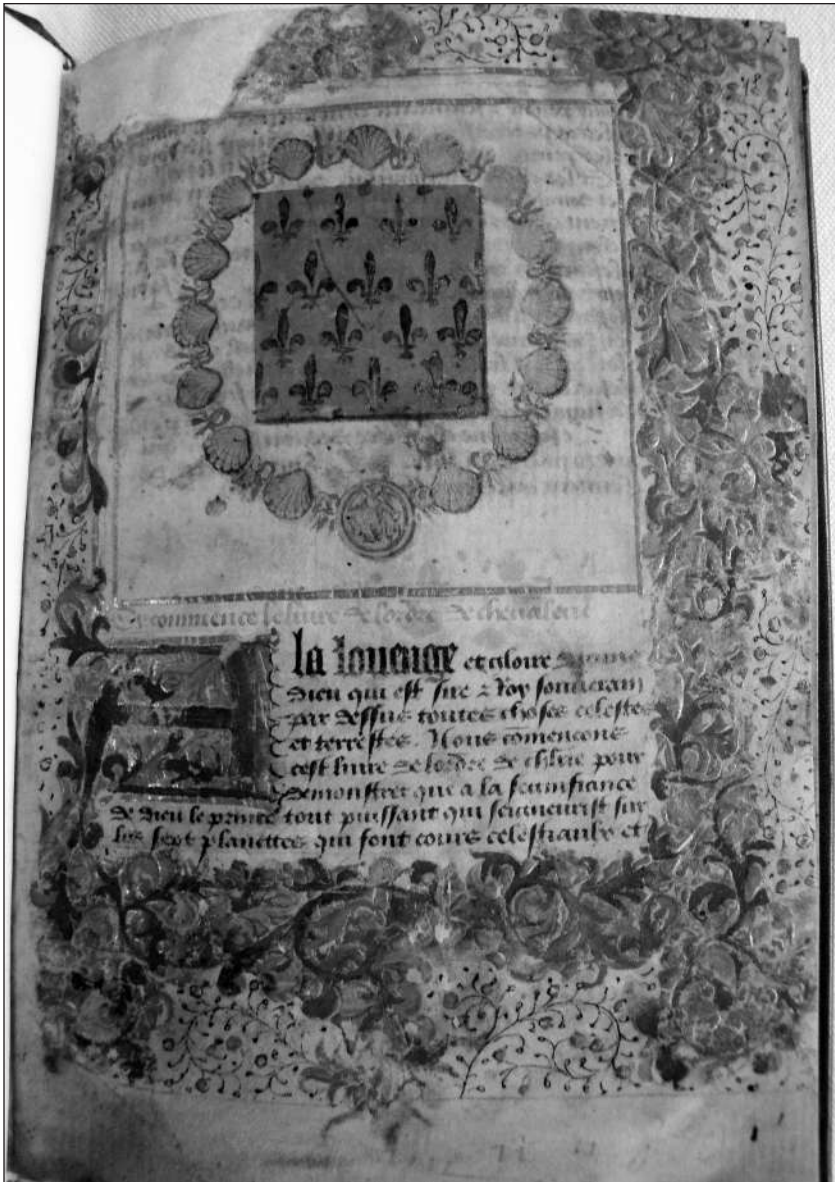 commence le livre de lordre de chevalerie
A la louenge et gloire divine
dieu qui est sire & Roy souverain
par dessus toutes choses celestes
et terrestres. Nous comencons
cest livre de lordre de chlrie pour
demonstrer que a la
de dieu le prince tout puissant qui seigneurist sur
les sept planettes qui font cours celestiaulx et